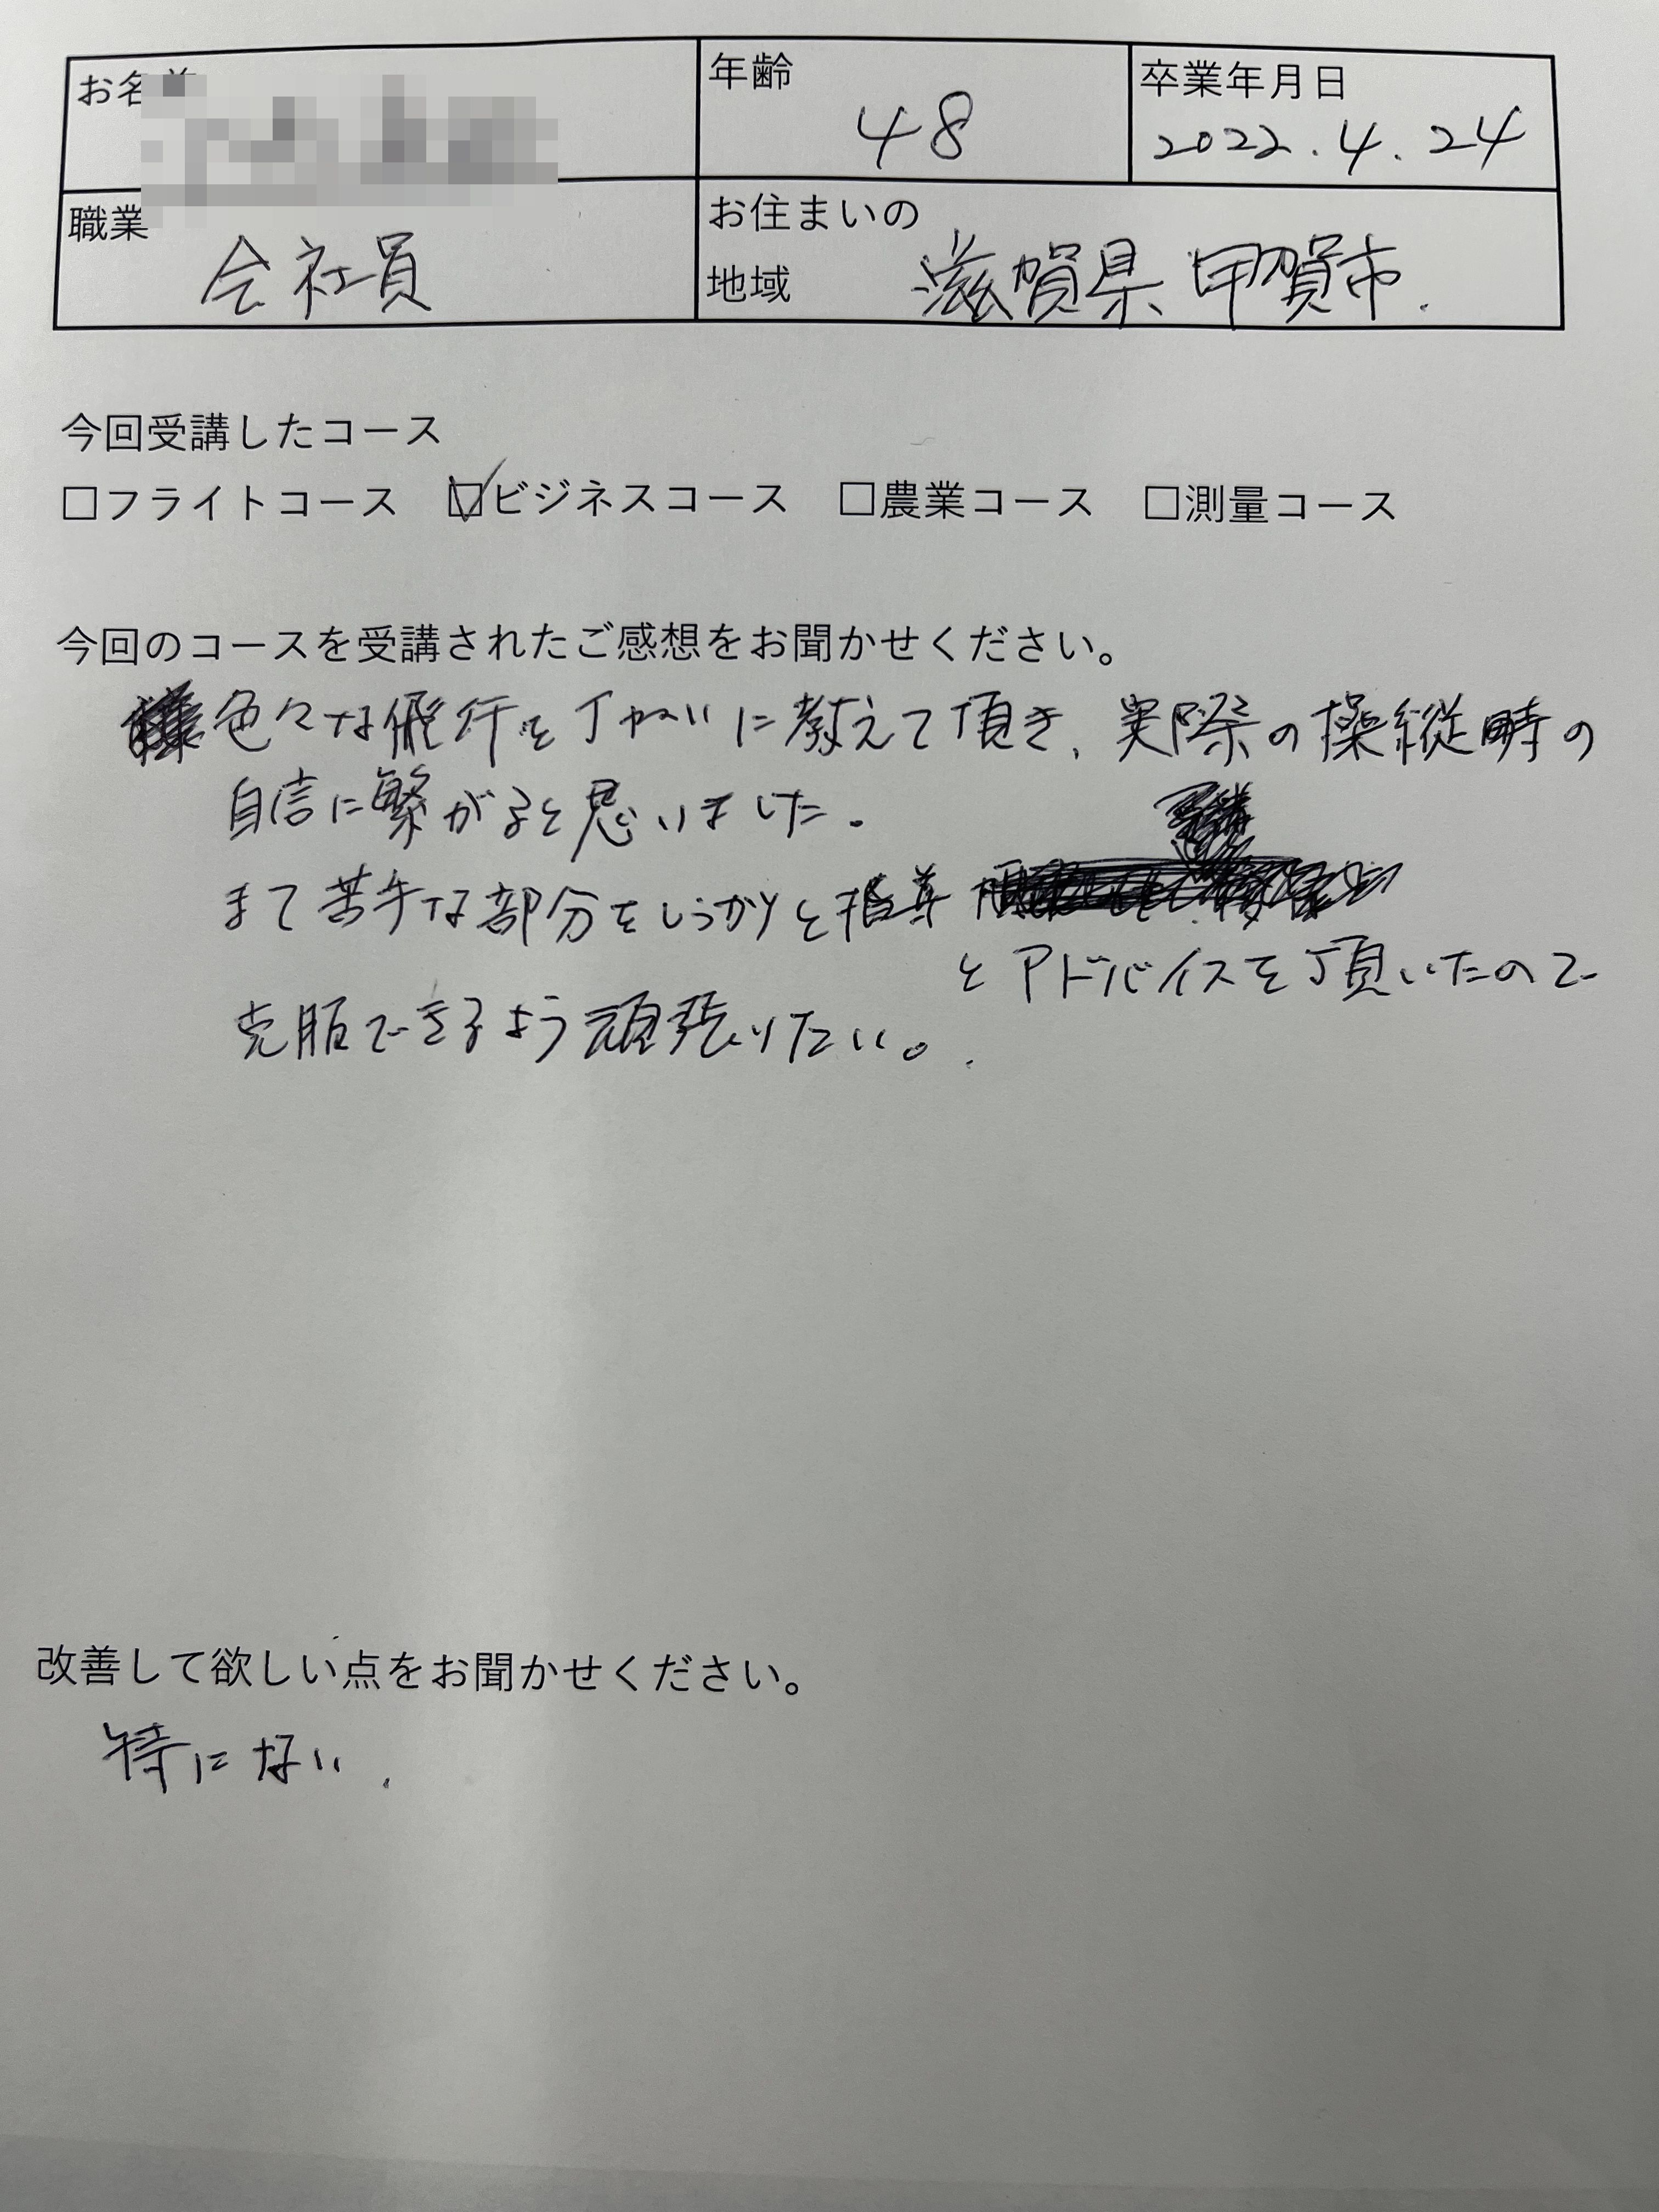 お名
年齢
48
卒業年月日
2022.4.24
職業
会社員
お住まいの
地域
滋賀県 甲賀市.
今回受講したコース
□フライトコース ☑ビジネスコース □農業コース □測量コース
今回のコースを受講されたご感想をお聞かせください。
色々な飛行を丁ねいに教えて頂き、実際の操縦時の
自信に繋がると思いました。
まて苦手な部分をしっかりと指導
とアドバイスを頂いたので
克服できるよう頑張りたい。
改善して欲しい点をお聞かせください。
特にない.